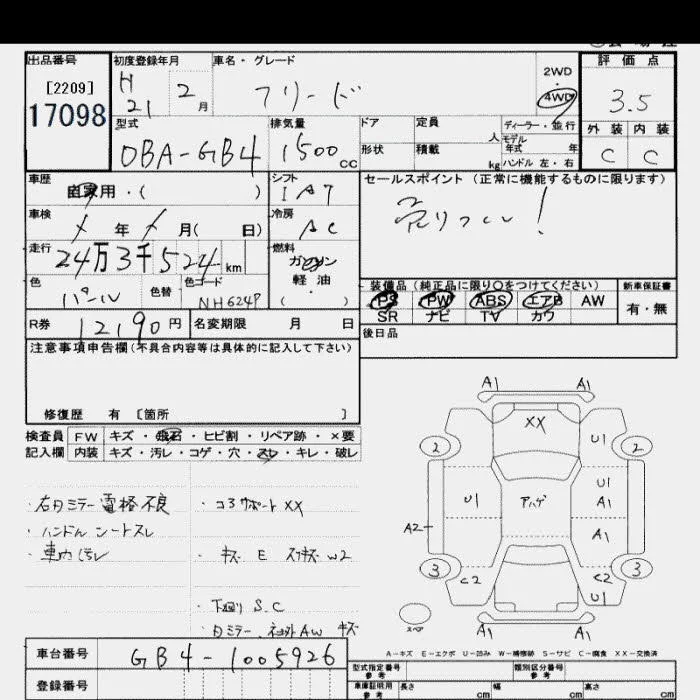 出品番号 初度登録年月 車名・グレード 評価点
[2209]
17098
H 21 2月
フリード
2WD
・
4WD
3.5
外装 内装
C C
型式 排気量 ドア 定員 ディーラー・並行
DBA-GB4 1500cc
人 モデル年式 年
形状 積載 kg ハンドル 左・右
車歴 シフト セールスポイント (正常に機能するものに限ります)
自家用・( ) IAT
売りつくし!
車検 年 月( 日) 冷房 AC
走行 燃料
24万3千524km ガソリン・軽油
色 色替 色コード
パール NH624P
装備品 (純正品に限り○をつけてください) 新車保証書
PS PW ABS エアB AW
SR ナビ TV カワ
有・無
R券 12190円 名変期限 月 日
後日品
注意事項申告欄(不具合内容等は具体的に記入して下さい)
修復歴 有 [箇所 ]
検査員 FW キズ・飛石・ヒビ割・リペア跡・×要
記入欄 内装 キズ・汚レ・コゲ・穴・スレ・キレ・破レ
・右ミラー電格不良
・ハンドル シートスレ
・車内汚レ
・コアサポートXX
・キズ E スリキズ W2
・下廻りS.C
A1 A1
XX
U1
2 2
U1
U1
A1
アハゲ
A2
A1
3 3
C2 C2
U1
スペア
A1 A1
A-キズ E-エクボ U-凹み W-補修跡 S-サビ C-腐食 XX-交換済
車台番号 GB4-1005926
登録番号
型式指定番号 参考 類別区分番号 参考
車庫証明用 参考 長さ cm 幅 cm 高さ cm